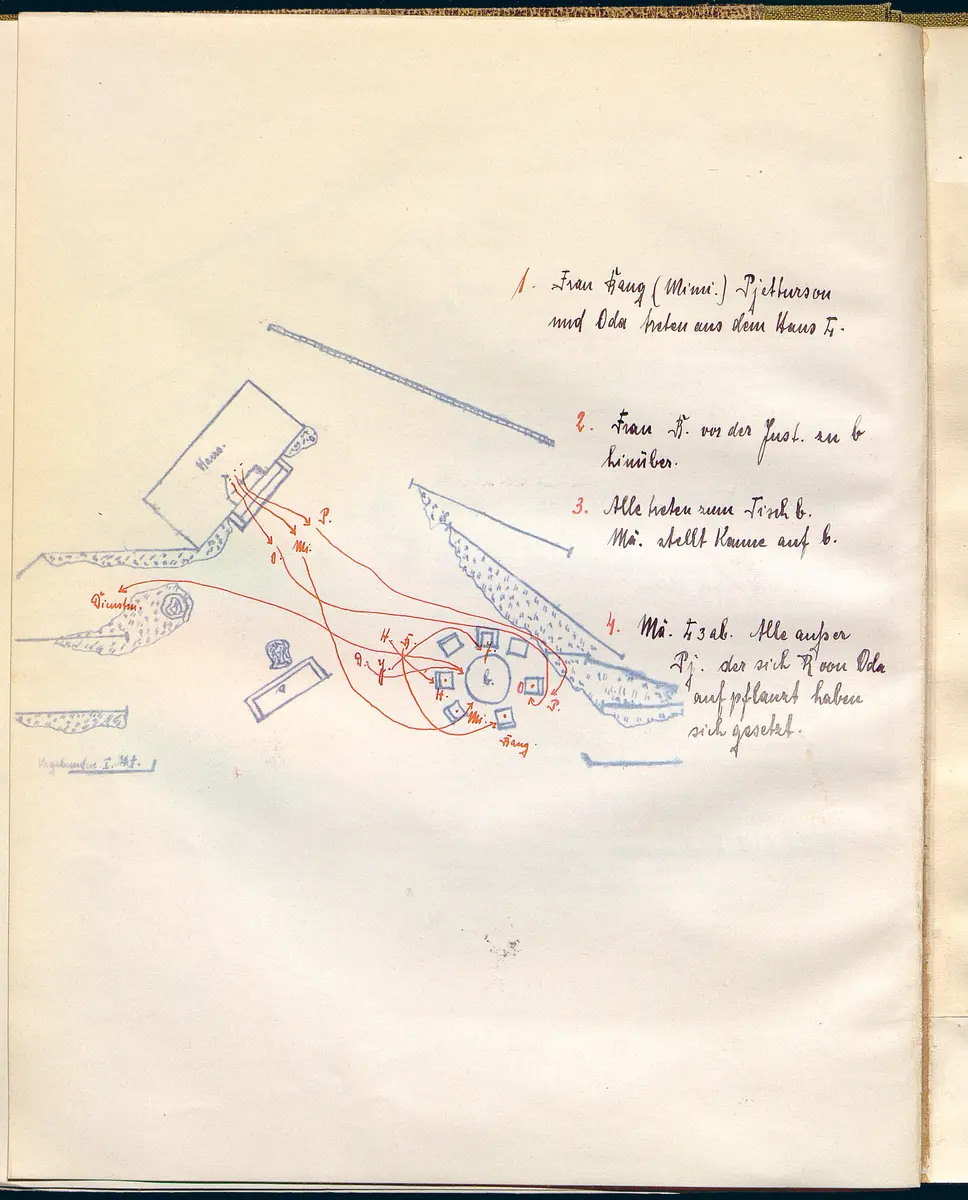 1. Frau Bang (Mimi.) Pjetturson
und Oda treten aus dem Haus L.
2. Frau B. vor der Just. zu b
hinüber.
3. Alle treten zum Tisch b.
Mä. stellt Kanne auf b.
4. Mä. L3 ab. Alle außer
Pj. der sich R von Oda
aufpflanzt haben
sich gesetzt.
Haus.
P.
Mi.
O.
Dienstm.
H. B.
D. J.
b.
H.
O
P.
Mi.
Bang.
Vagabunden I. Akt.